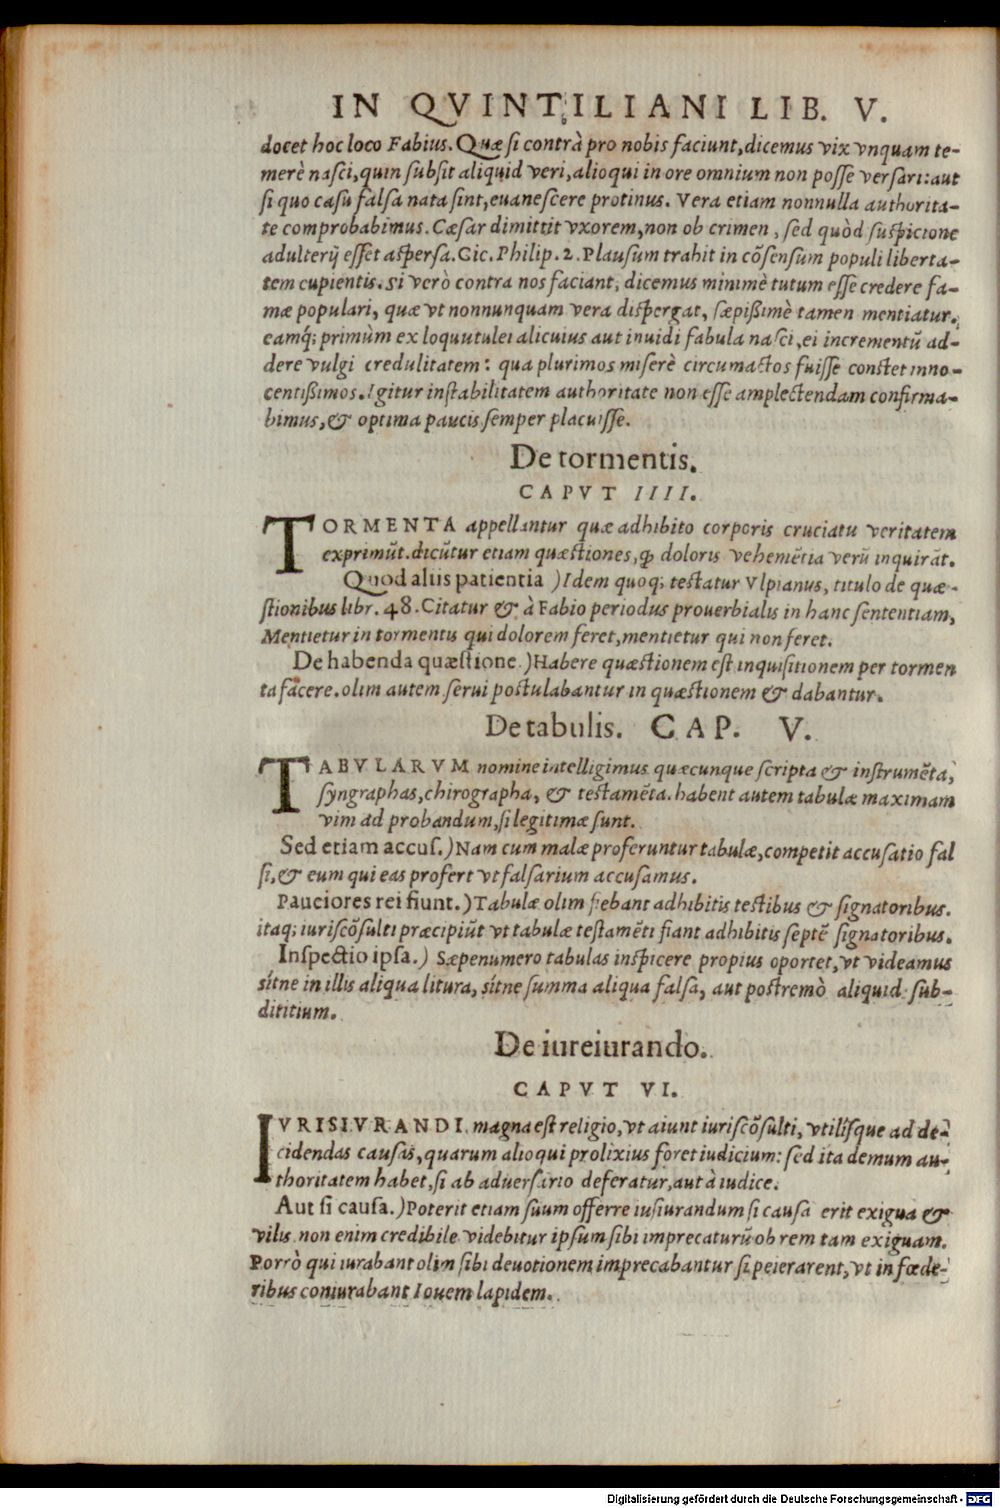 IN QVINTILIANI LIB. V.
docet hoc loco Fabius. Quæ si contrà pro nobis faciunt, dicemus vix vnquam te-
merè nasci, quin subsit aliquid veri, alioqui in ore omnium non posse versari: aut
si quo casu falsa nata sint, euanescere protinus. Vera etiam nonnulla authorita-
te comprobabimus. Cæsar dimittit vxorem, non ob crimen, sed quòd suspicione
adulterij esset aspersa. Cic. Philip. 2. Plausum trahit in cõsensum populi liberta-
tem cupientis. Si verò contra nos faciant, dicemus minimè tutum esse credere fa-
mæ populari, quæ vt nonnunquam vera dispergat, sæpißimè tamen mentiatur.
eamq; primùm ex loquutulei alicuius aut inuidi fabula nasci, ei incrementũ ad-
dere vulgi credulitatem: qua plurimos miserè circumactos fuisse constet inno-
centißimos. Igitur instabilitatem authoritate non esse amplectendam confirma-
bimus, & optima paucis semper placuisse.
De tormentis.
CAPVT IIII.
TORMENTA appellantur quæ adhibito corporis cruciatu veritatem
exprimũt. dicũtur etiam quæstiones, ꝙ doloris vehemẽtia verũ inquirãt.
Quod aliis patientia )Idem quoq; testatur Vlpianus, titulo de quæ-
stionibus libr. 48. Citatur & à Fabio periodus prouerbialis in hanc sententiam,
Mentietur in tormentis qui dolorem feret, mentietur qui non feret.
De habenda quæstione.)Habere quæstionem est inquisitionem per tormen
ta facere. olim autem serui postulabantur in quæstionem & dabantur.
De tabulis. CAP. V.
TABVLARVM nomine intelligimus quæcunque scripta & instrumẽta,
syngraphas, chirographa, & testamẽta. habent autem tabulæ maximam
vim ad probandum, si legitimæ sunt.
Sed etiam accus.)Nam cum malæ proferuntur tabulæ, competit accusatio fal
si, & eum qui eas profert vt falsarium accusamus.
Pauciores rei fiunt.)Tabulæ olim fiebant adhibitis testibus & signatoribus.
itaq; iuriscõsulti præcipiũt vt tabulæ testamẽti fiant adhibitis septẽ signatoribus.
Inspectio ipsa.) Sæpenumero tabulas inspicere propius oportet, vt videamus
sítne in illis aliqua litura, sítne summa aliqua falsa, aut postremò aliquid sub-
dititium.
De iureiurando.
CAPVT VI.
IVRISIVRANDI magna est religio, vt aiunt iuriscõsulti, vtilísque ad de-
cidendas causas, quarum alioqui prolixius foret iudicium: sed ita demum au-
thoritatem habet, si ab aduersario deferatur, aut à iudice.
Aut si causa.)Poterit etiam suum offerre iusiurandum si causa erit exigua &
vilis. non enim credibile videbitur ipsum sibi imprecaturũ ob rem tam exiguam.
Porrò qui iurabant olim sibi deuotionem imprecabantur si peierarent, vt in fœde-
ribus coniurabant Iouem lapidem.
Digitalisierung gefördert durch die Deutsche Forschungsgemeinschaft - DFG